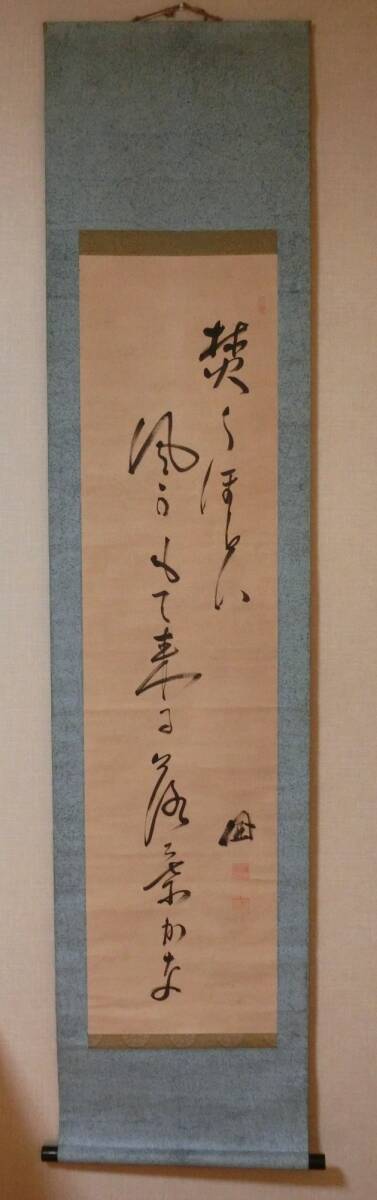 焚くほどハ
風がもて来る落葉かな